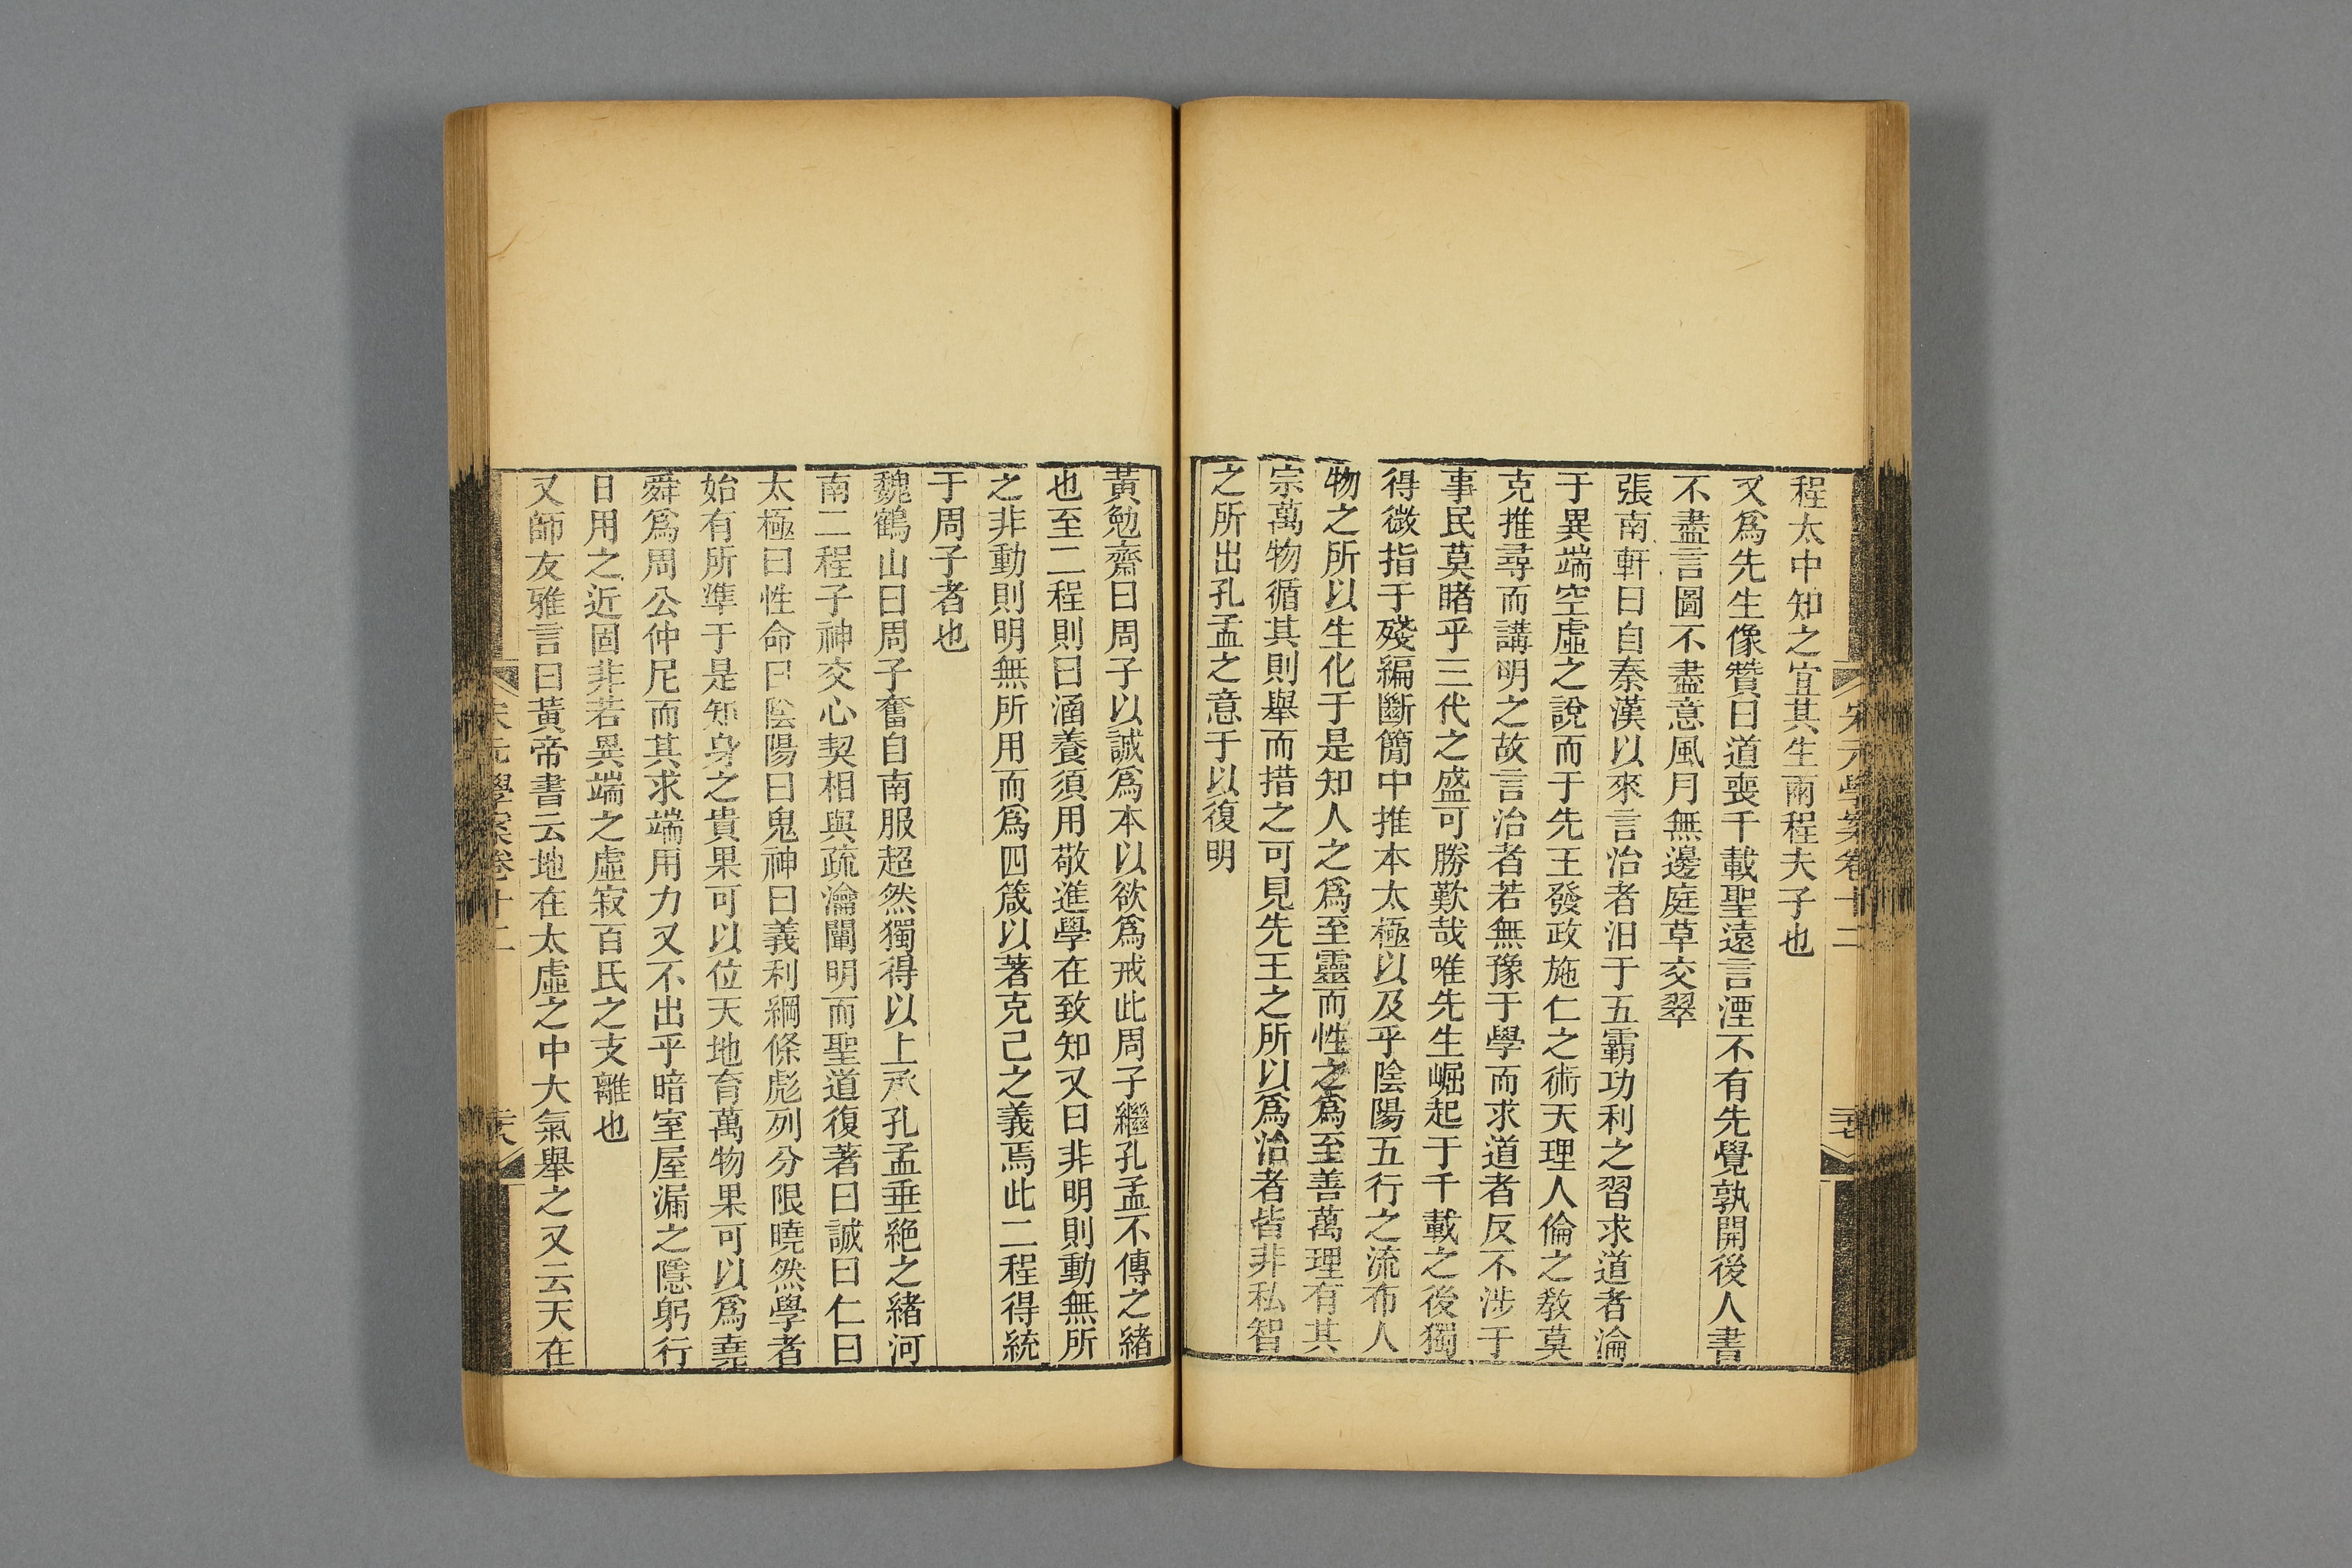 宋元學案卷十二
程太中知之宜其生兩程夫子也
又爲先生像贊曰道喪千載聖遠言湮不有先覺孰開後人書
不盡言圖不盡意風月無邊庭草交翠
張南軒曰自秦漢以來言治者汨于五霸功利之習求道者淪
于異端空虛之說而于先王發政施仁之術天理人倫之敎莫
克推尋而講明之故言治者若無豫于學而求道者反不涉于
事民莫睹乎三代之盛可勝歎哉唯先生崛起于千載之後獨
得微指于殘編斷簡中推本太極以及乎陰陽五行之流布人
物之所以生化于是知人之爲至靈而性之爲至善萬理有其
宗萬物循其則舉而措之可見先王之所以爲治者皆非私智
之所出孔孟之意于以復明
黃勉齋曰周子以誠爲本以欲爲戒此周子繼孔孟不傳之緒
也至二程則曰涵養須用敬進學在致知又曰非明則動無所
之非動則明無所用而爲四箴以著克己之義焉此二程得統
于周子者也
魏鶴山曰周子奮自南服超然獨得以上承孔孟垂絶之緒河
南二程子神交心契相與疏瀹闡明而聖道復著曰誠曰仁曰
太極曰性命曰陰陽曰鬼神曰義利綱條彪列分限曉然學者
始有所準于是知身之貴果可以位天地育萬物果可以爲堯
舜爲周公仲尼而其求端用力又不出乎暗室屋漏之隱躬行
日用之近固非若異端之虛寂百氏之支離也
又師友雅言曰黃帝書云地在太虛之中大氣舉之又云天在
宋元學案卷十二